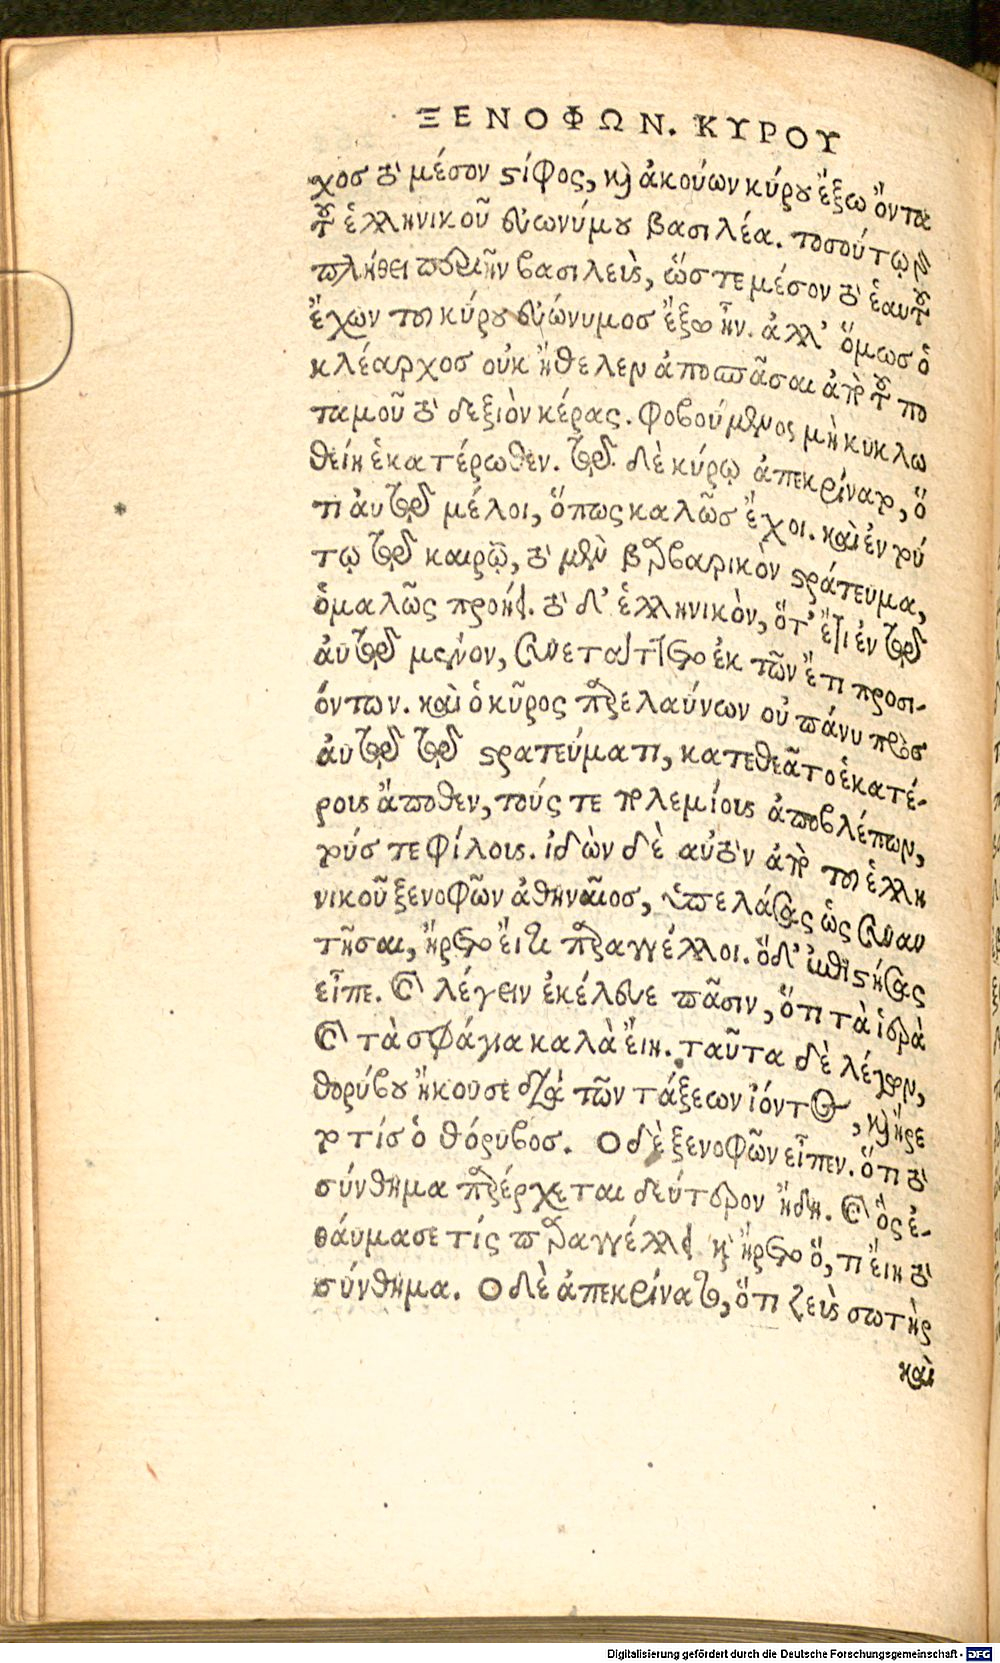 ΞΕΝΟΦΩΝ. ΚΥΡΟΥ
χος τὸ μέσον στίφος, καὶ ἀκούων κύρου ἔξω ὄντα
τοῦ ἑλληνικοῦ εὐωνύμου βασιλέα. τοσούτῳ
πλήθει περιῆν βασιλεὺς, ὥστε μέσον τὸ ἑαυτοῦ
ἔχων τοῦ κύρου εὐώνυμος ἔξω ἦν. ἀλλ' ὅμως ὁ
κλέαρχος οὐκ ἤθελεν ἀποσπᾶσαι ἀπὸ τοῦ πο
ταμοῦ τὸ δεξιὸν κέρας. φοβούμενος μὴ κυκλω
θείη ἑκατέρωθεν. τῷ δὲ κύρῳ ἀπεκρίνατο, ὅ
τι αὐτῷ μέλοι, ὅπως καλῶς ἔχοι. καὶ ἐν τού
τῳ τῷ καιρῷ, τὸ μὲν βαρβαρικὸν στράτευμα,
ὁμαλῶς προήει. τὸ δ' ἑλληνικὸν, ὅτ' ἔτι ἐν τῷ
αὐτῷ μένον, συνετάττετο ἐκ τῶν ἔτι προσι-
όντων. καὶ ὁ κῦρος παρελαύνων οὐ πάνυ πρὸς
αὐτῷ τῷ στρατεύματι, κατεθεᾶτο ἑκατέ-
ρους ἄποθεν, τούς τε πολεμίους ἀποβλέπων,
τούς τε φίλους. ἰδὼν δὲ αὐτὸν ἀπὸ τοῦ ἑλλη
νικοῦ ξενοφῶν ἀθηναῖος, ὑπελάσας ὡς συναν
τῆσαι, ἤρετο εἴ τι παραγγέλλοι. ὅδ' ἐπιστήσας
εἶπε. καὶ λέγειν ἐκέλευε πᾶσιν, ὅτι τὰ ἱερὰ
καὶ τὰ σφάγια καλὰ εἴη. ταῦτα δὲ λέγων,
θορύβου ἤκουσε διὰ τῶν τάξεων ἰόντος, καὶ ἤρε
το τίς ὁ θόρυβος. Ὁ δὲ ξενοφῶν εἶπεν. ὅτι τὸ
σύνθημα παρέρχεται δεύτερον ἤδη. καὶ ὃς ἐ-
θαύμασε τίς παραγγέλλει καὶ ἤρετο ὅ, τι εἴη τὸ
σύνθημα. Ὁ δὲ ἀπεκρίνατο, ὅτι ζεὺς σωτὴρ
καὶ
Digitalisierung gefördert durch die Deutsche Forschungsgemeinschaft - DFG